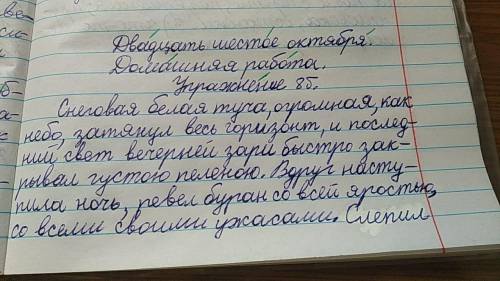 Двадцать шестое октября.
Домашняя работа.
Упражнение 85.
Снеговая белая туча, огромная, как
небо, затянул весь горизонт, и послед-
ний свет вечерней зари быстро зак-
рывал густою пеленою. Вдруг насту-
пила ночь, ревел буран со всей яростью,
со всеми своими ужасами. Слепил